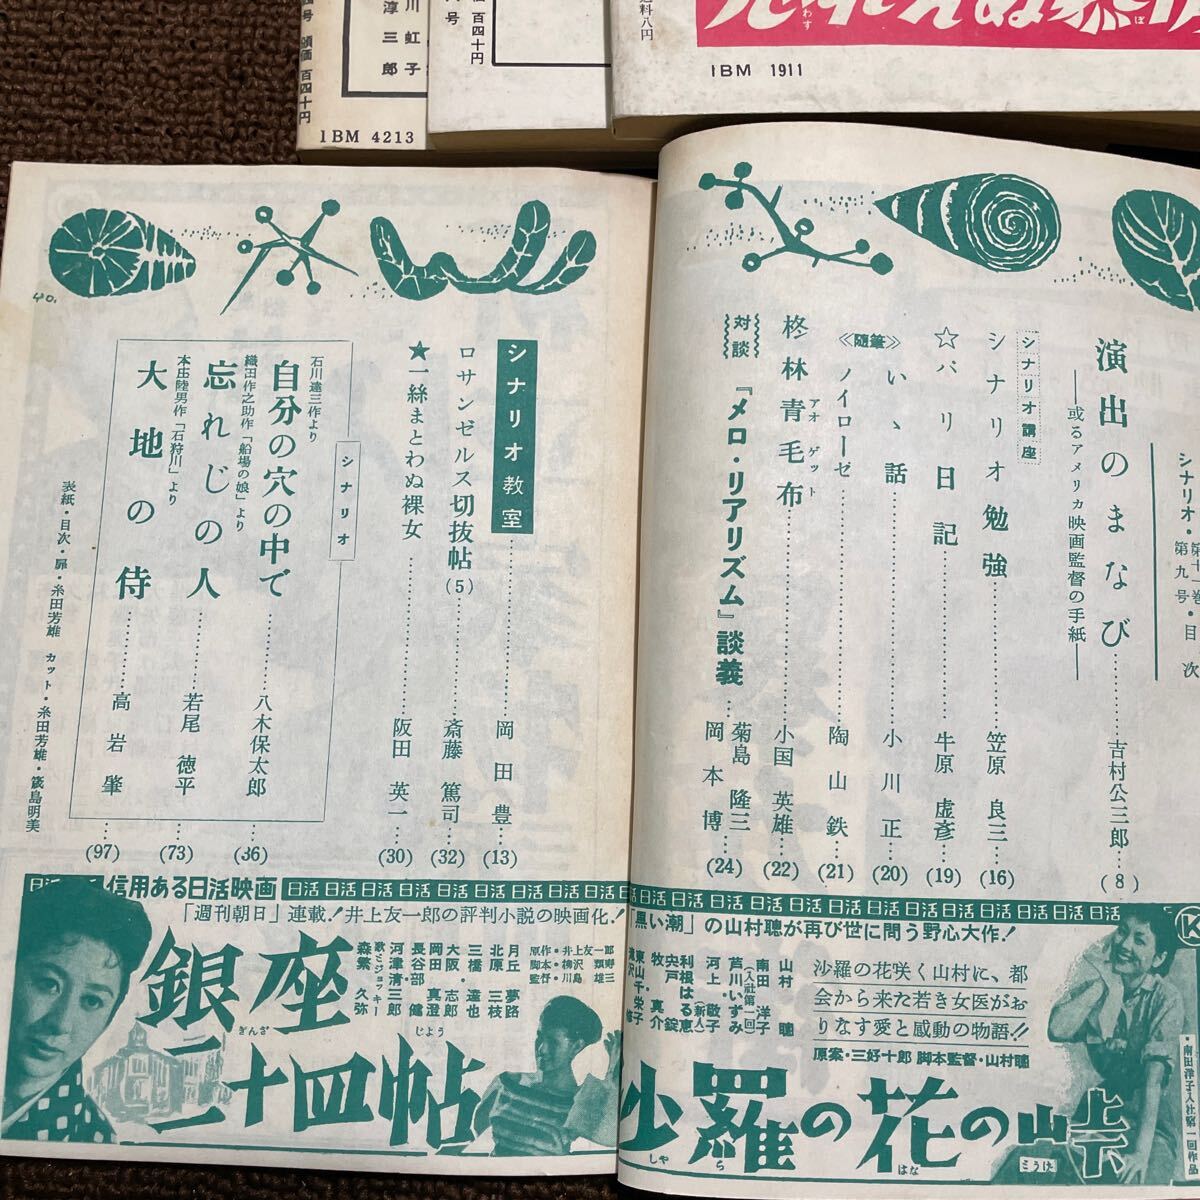 IBM 4213
価 百四十円
IBM 1911
シナリオ・第十一巻第九号・目次
演出のまなび
――或るアメリカ映画監督の手紙――
吉村公三郎
(8)
シナリオ講座
シナリオ勉強
笠原良三
(16)
☆パリ日記
牛原虚彦
(19)
いゝ話
小川正
(20)
≪随筆≫
ノイローゼ
陶山鉄
(21)
柊林青毛布
アオ ゲット
小国英雄
(22)
対談
『メロ・リアリズム』談義
菊島隆三
岡本博
(24)
シナリオ教室
岡田豊
(13)
ロサンゼルス切抜帖(5)
斎藤篤司
(32)
★一絲まとわぬ裸女
阪田英一
(30)
シナリオ
石川達三作より
自分の穴の中で
八木保太郎
(36)
織田作之助作「船場の娘」より
忘れじの人
若尾徳平
(73)
本庄陸男作「石狩川」より
大地の侍
高岩肇
(97)
表紙・目次・扉・糸田芳雄 カット・糸田芳雄・箴島明美
信用ある日活映画
日活 日活 日活 日活 日活 日活 日活 日活 日活
「黒い潮」の山村聰が再び世に問う野心大作!
沙羅の花咲く山村に、都
会から来た若き女医がお
りなす愛と感動の物語!!
原案・三好十郎 脚本監督・山村聰
山村 聰
南田洋子
(入社第一回)
芦川いずみ
(新人)
河上敬子
利根はる恵
宍戸錠
牧真介
東山千栄子
沙羅の花の峠
しゃら はな とうげ
・南田洋子入社第一回作品
「週刊朝日」連載!井上友一郎の評判小説の映画化!
原作・井上友一郎
脚本・柳沢類寿
監督・川島雄三
月丘夢路
北原三枝
三橋達也
大阪志郎
岡田真澄
長谷部健
河津清三郎
歌とジョッキー
森繁久弥
銀座二十四帖
ぎんざ じょう